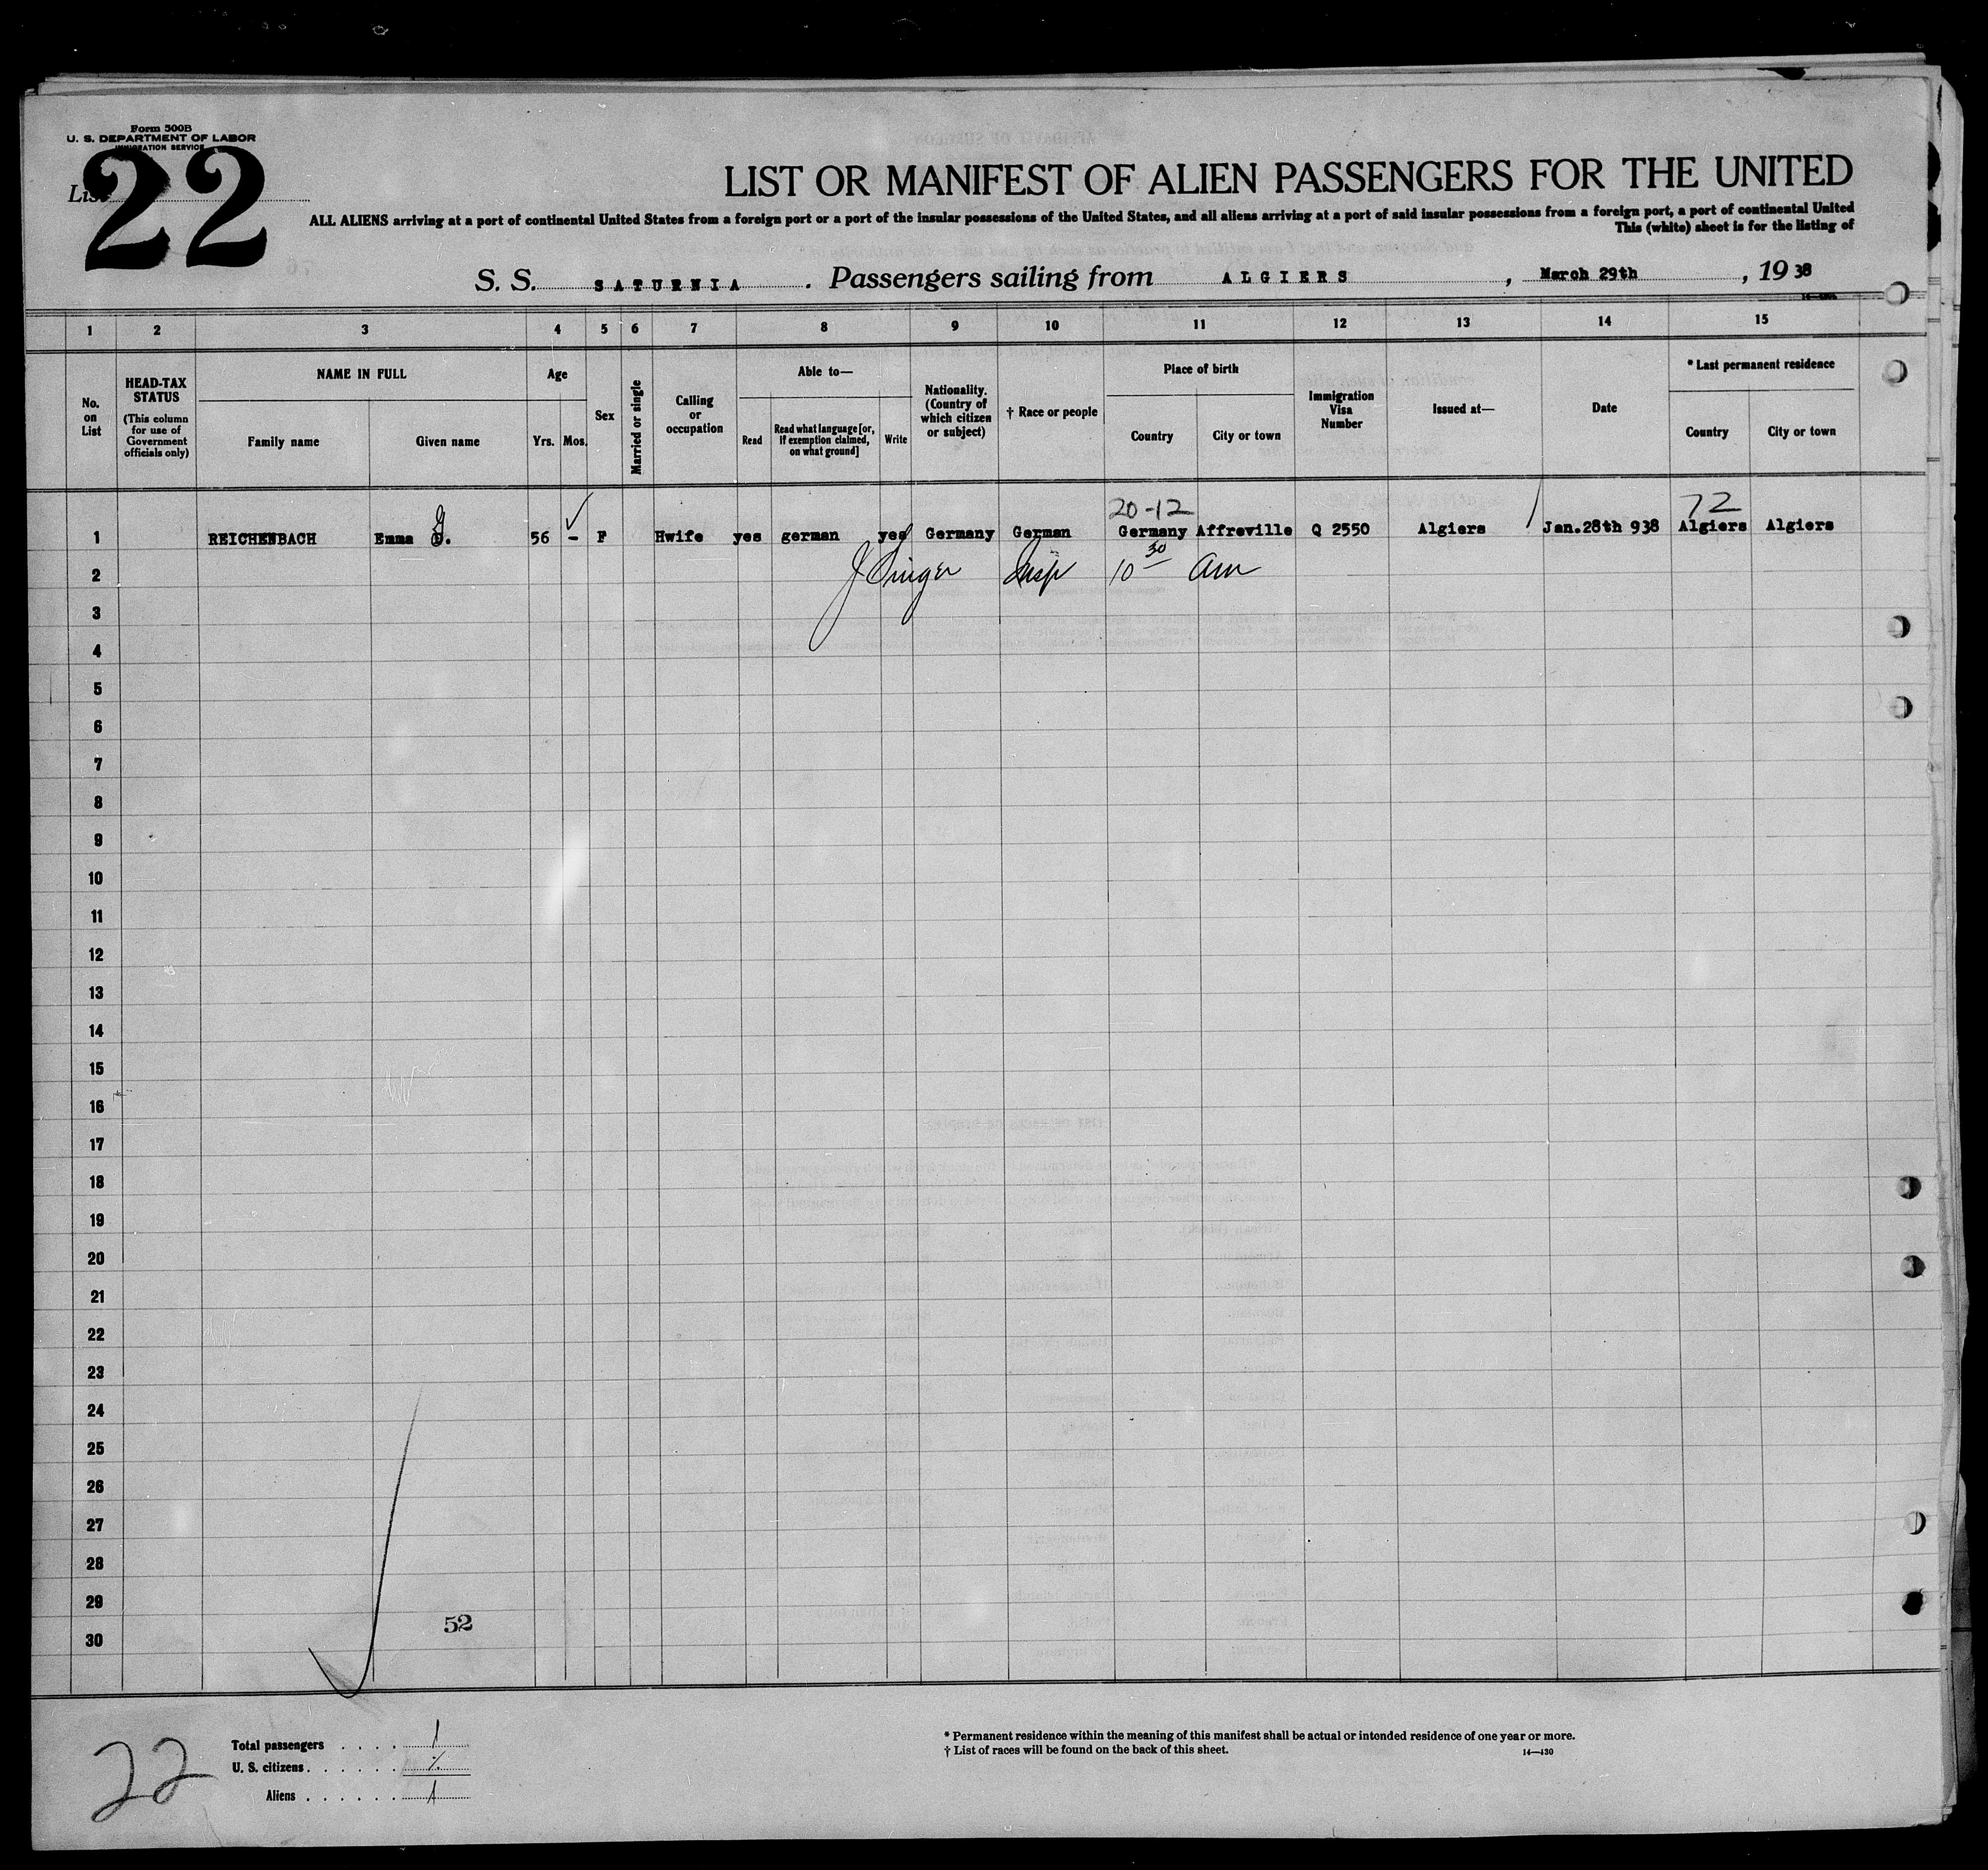 Form 500B
U. S. DEPARTMENT OF LABOR
IMMIGRATION SERVICE
List
22
LIST OR MANIFEST OF ALIEN PASSENGERS FOR THE UNITED
ALL ALIENS arriving at a port of continental United States from a foreign port or a port of the insular possessions of the United States, and all aliens arriving at a port of said insular possessions from a foreign port, a port of continental United
This (white) sheet is for the listing of
S. S. SATURNIA . Passengers sailing from ALGIERS , March 29th , 19 38
1 2 3 4 5 6 7 8 9 10 11 12 13 14 15
No. on List
HEAD-TAX STATUS
(This column for use of Government officials only)
NAME IN FULL
Family name
Given name
Age
Yrs.
Mos.
Sex
Married or single
Calling or occupation
Able to—
Read
Read what language [or, if exemption claimed, on what ground]
Write
Nationality. (Country of which citizen or subject)
† Race or people
Place of birth
Country
City or town
Immigration Visa Number
Issued at—
Date
* Last permanent residence
Country
City or town
20-12 72
1 REICHENBACH Emma G. 56 – F Hwife yes german yes Germany German Germany Affreville Q 2550 Algiers Jan.28th 938 Algiers Algiers
2 J Singer Insp 10 30 am
3
4
5
6
7
8
9
10
11
12
13
14
15
16
17
18
19
20
21
22
23
24
25
26
27
28
29
52
30
22
Total passengers . . . . 1
U. S. citizens . . . . . .
Aliens . . . . . . 1
* Permanent residence within the meaning of this manifest shall be actual or intended residence of one year or more.
† List of races will be found on the back of this sheet. 14—430